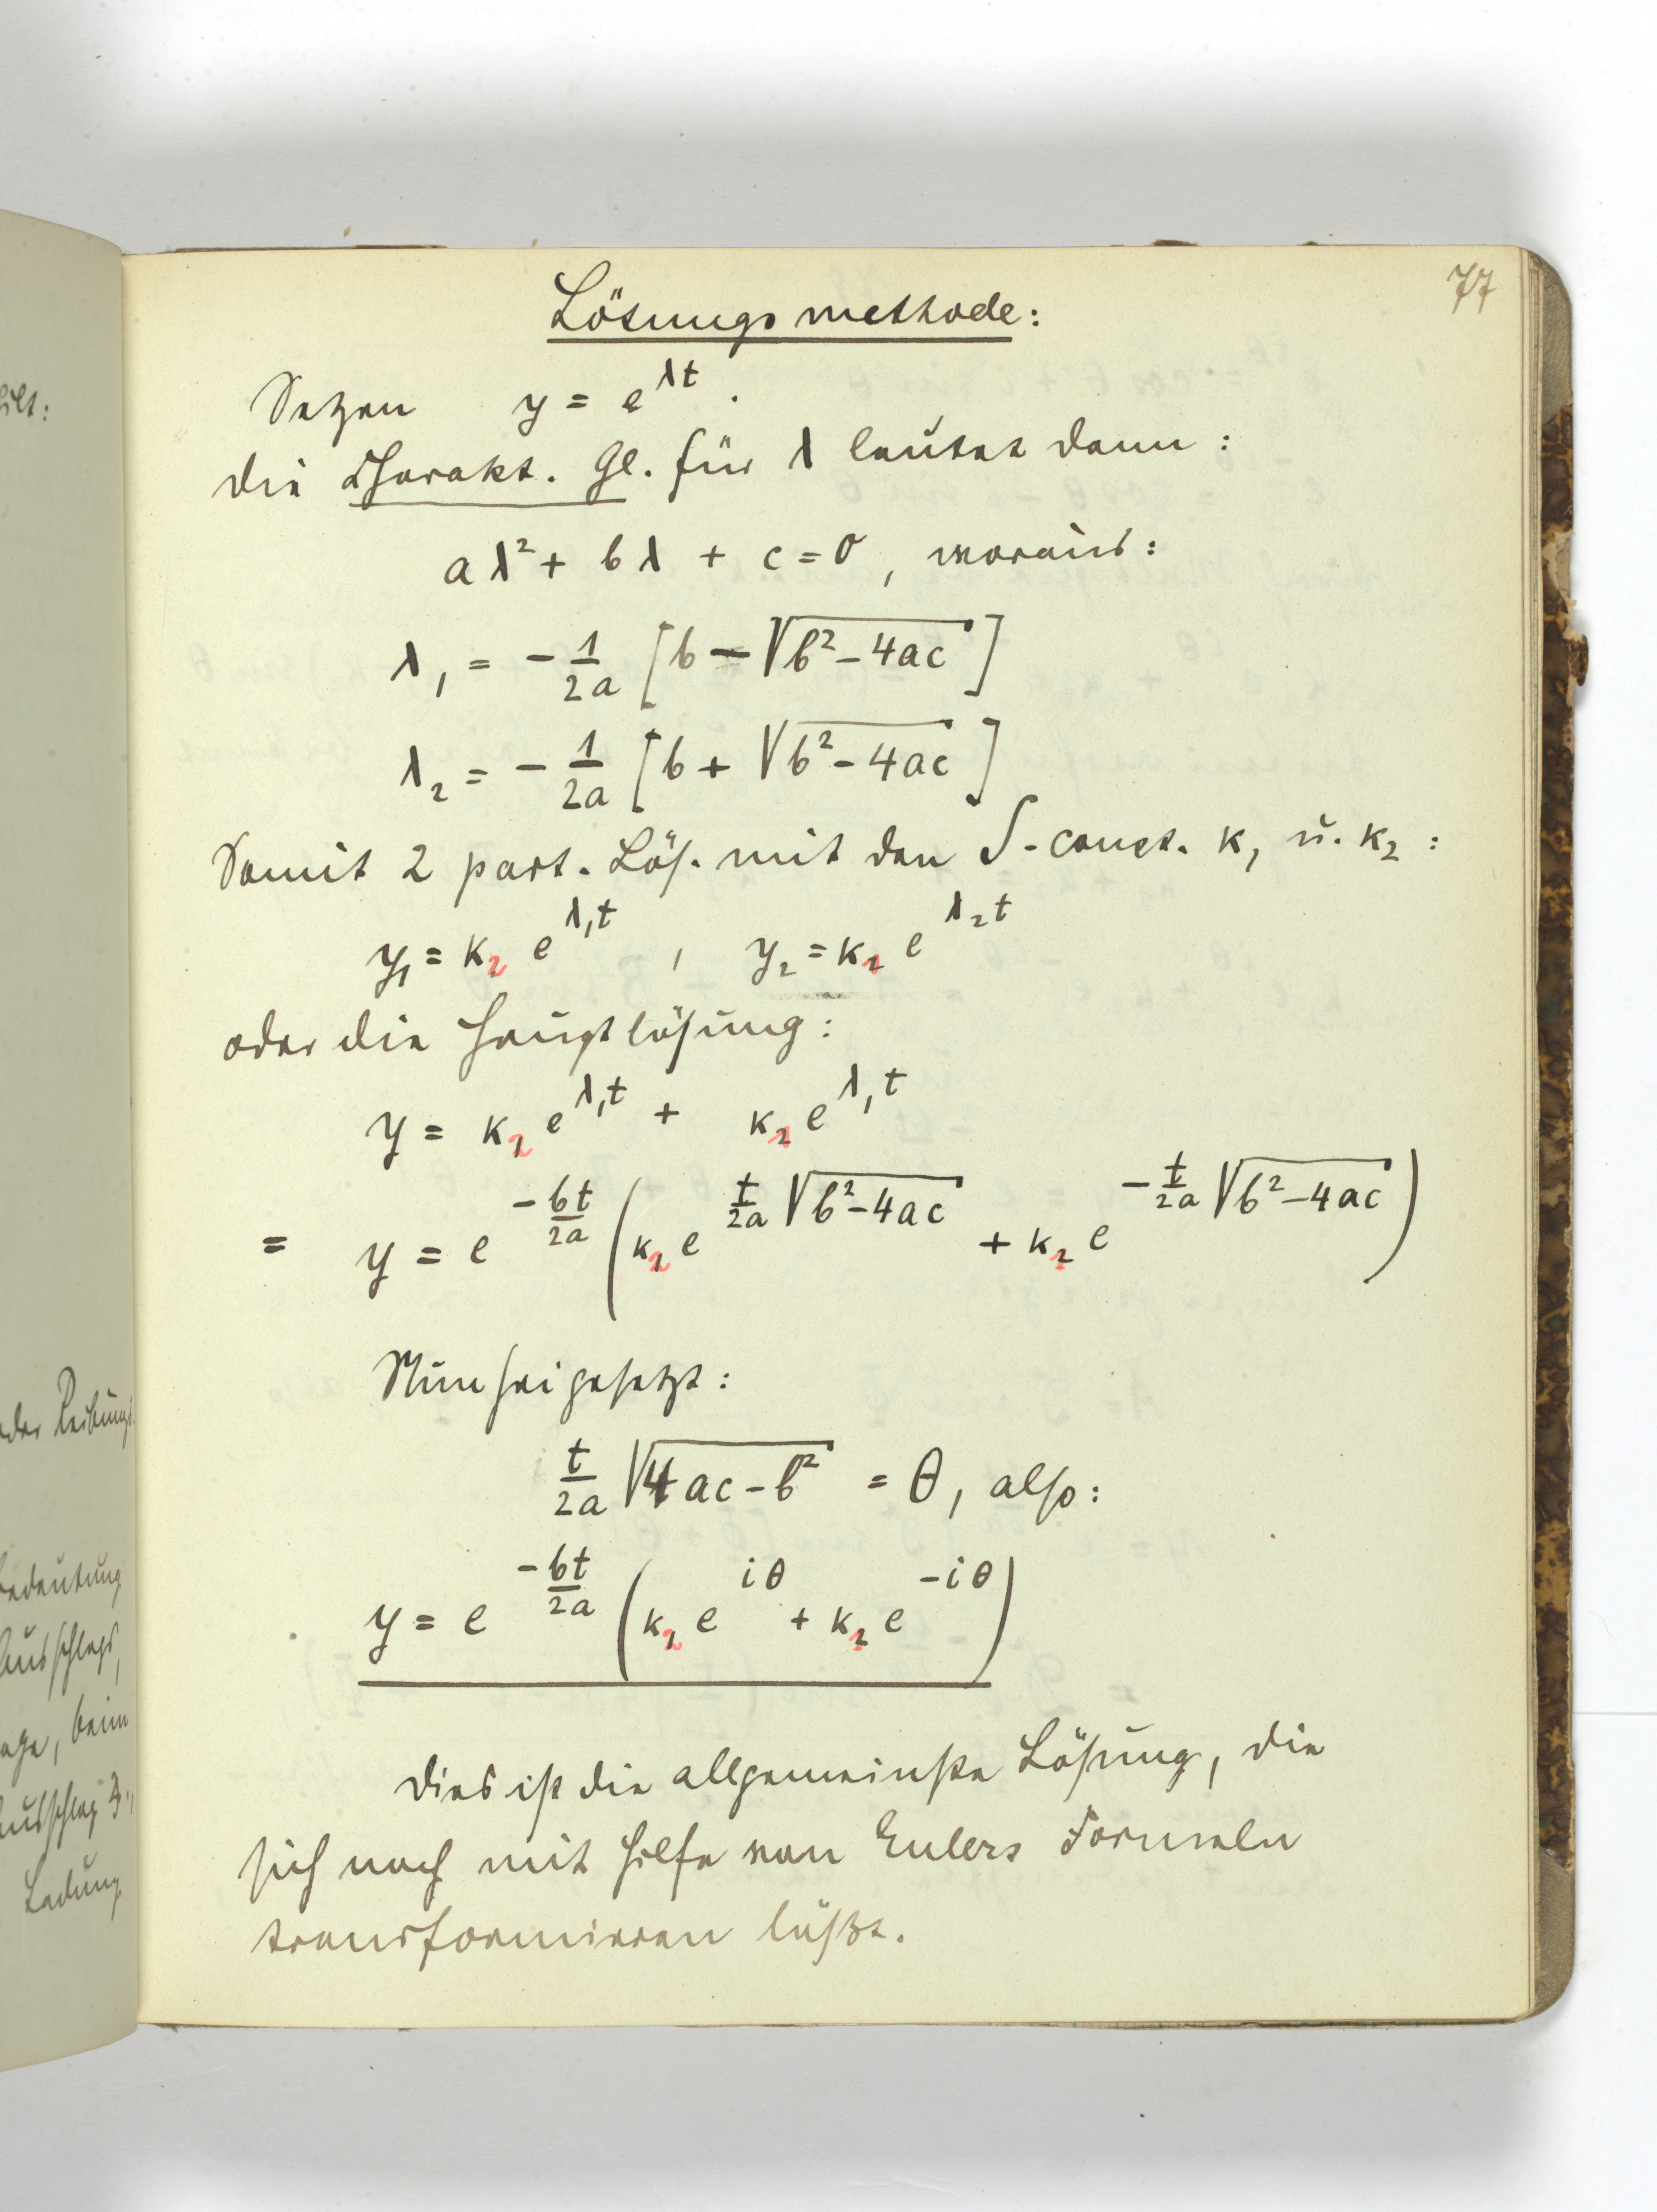 77
Lösungsmethode:
Setzen y = e^{λt}.
Die Charakt. Gl. für λ lautet dann:
aλ² + bλ + c = 0, woraus:
λ₁ = - 1/2a [b - √(b² - 4ac)]
λ₂ = - 1/2a [b + √(b² - 4ac)]
Somit 2 part. Lös. mit den ∫-const. k₁ u. k₂:
y₁ = k₂ e^{λ₁t}, y₂ = k₁ e^{λ₂t}
oder die Hauptlösung:
y = k₂ e^{λ₁t} + k₁ e^{λ₁t}
= y = e^{-bt/2a} (k₂ e^{t/2a √(b² - 4ac)} + k₁ e^{-t/2a √(b² - 4ac)})
Nun sei gesetzt:
t/2a √(4ac - b²) = θ, also:
y = e^{-bt/2a} (k₂ e^{iθ} + k₁ e^{-iθ})
Dies ist die allgemeinste Lösung, die
sich noch mit Hilfe von Eulers Formeln
transformieren läßt.
oder Reibungs
Bedeutung
Ausschlags,
beim
Ausschlag
Ladung